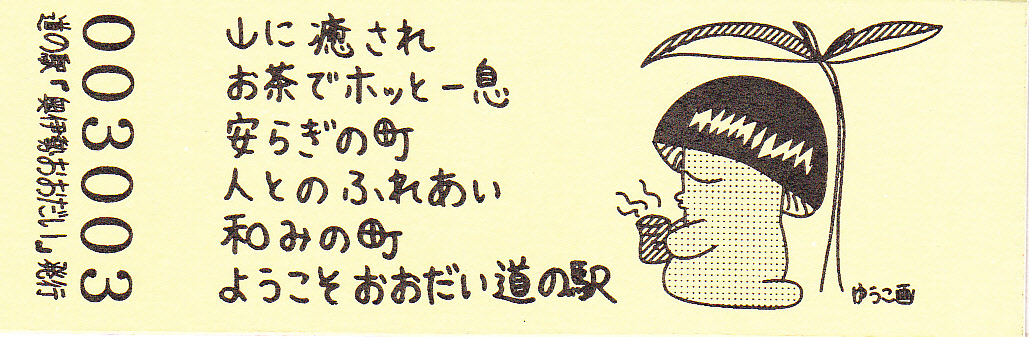 山に癒され
お茶でホッと一息
安らぎの町
人とのふれあい
和みの町
ようこそおおだい道の駅
ゆうこ画
003003
道の駅「奥伊勢おおだい」発行